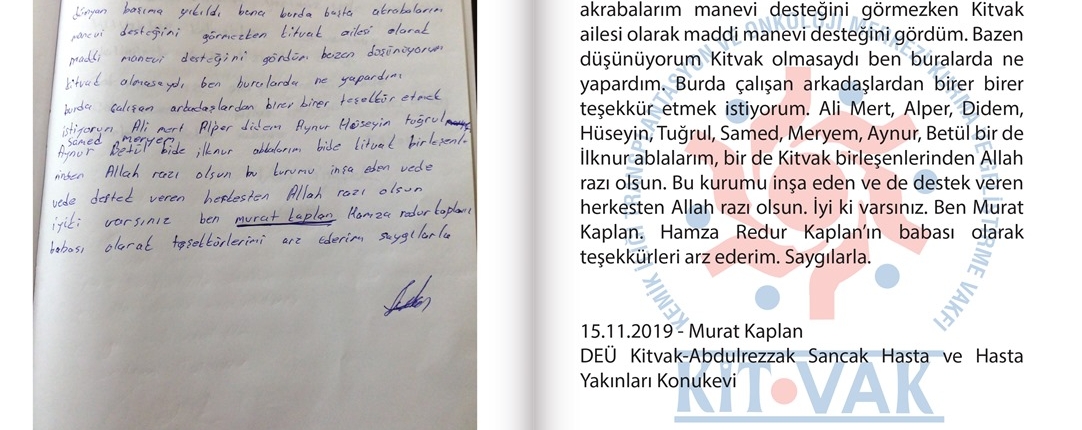 dünyan başıma yıkıldı bana burda başta akrabalarım
manevi desteğini görmezken kitvak ailesi olarak
maddi manevi desteğini gördüm bazen düşünüyorum
kitvak olmasaydı ben buralarda ne yapardım
burda çalışan arkadaşlardan birer birer teşekkür etmek
istiyorum Ali mert Alper didem Aynur Hüseyin tuğrul
samed meryem
Aynur Betül bide ilknur ablalarım bide kitvak birleşenle-
rinden Allah razı olsun bu kurumu inşa eden vede
vede destek veren herkesten Allah razı olsun
iyiki varsınız ben murat kaplan Hamza redur kaplanı
babası olarak teşekkürlerimi arz ederim saygılarla
akrabalarım manevi desteğini görmezken Kitvak
ailesi olarak maddi manevi desteğini gördüm. Bazen
düşünüyorum Kitvak olmasaydı ben buralarda ne
yapardım. Burda çalışan arkadaşlardan birer birer
teşekkür etmek istiyorum Ali Mert, Alper, Didem,
Hüseyin, Tuğrul, Samed, Meryem, Aynur, Betül bir de
İlknur ablalarım, bir de Kitvak birleşenlerinden Allah
razı olsun. Bu kurumu inşa eden ve de destek veren
herkesten Allah razı olsun. İyi ki varsınız. Ben Murat
Kaplan. Hamza Redur Kaplan’ın babası olarak
teşekkürleri arz ederim. Saygılarla.
15.11.2019 - Murat Kaplan
DEÜ Kitvak-Abdulrezzak Sancak Hasta ve Hasta
Yakınları Konukevi
KİT VAK